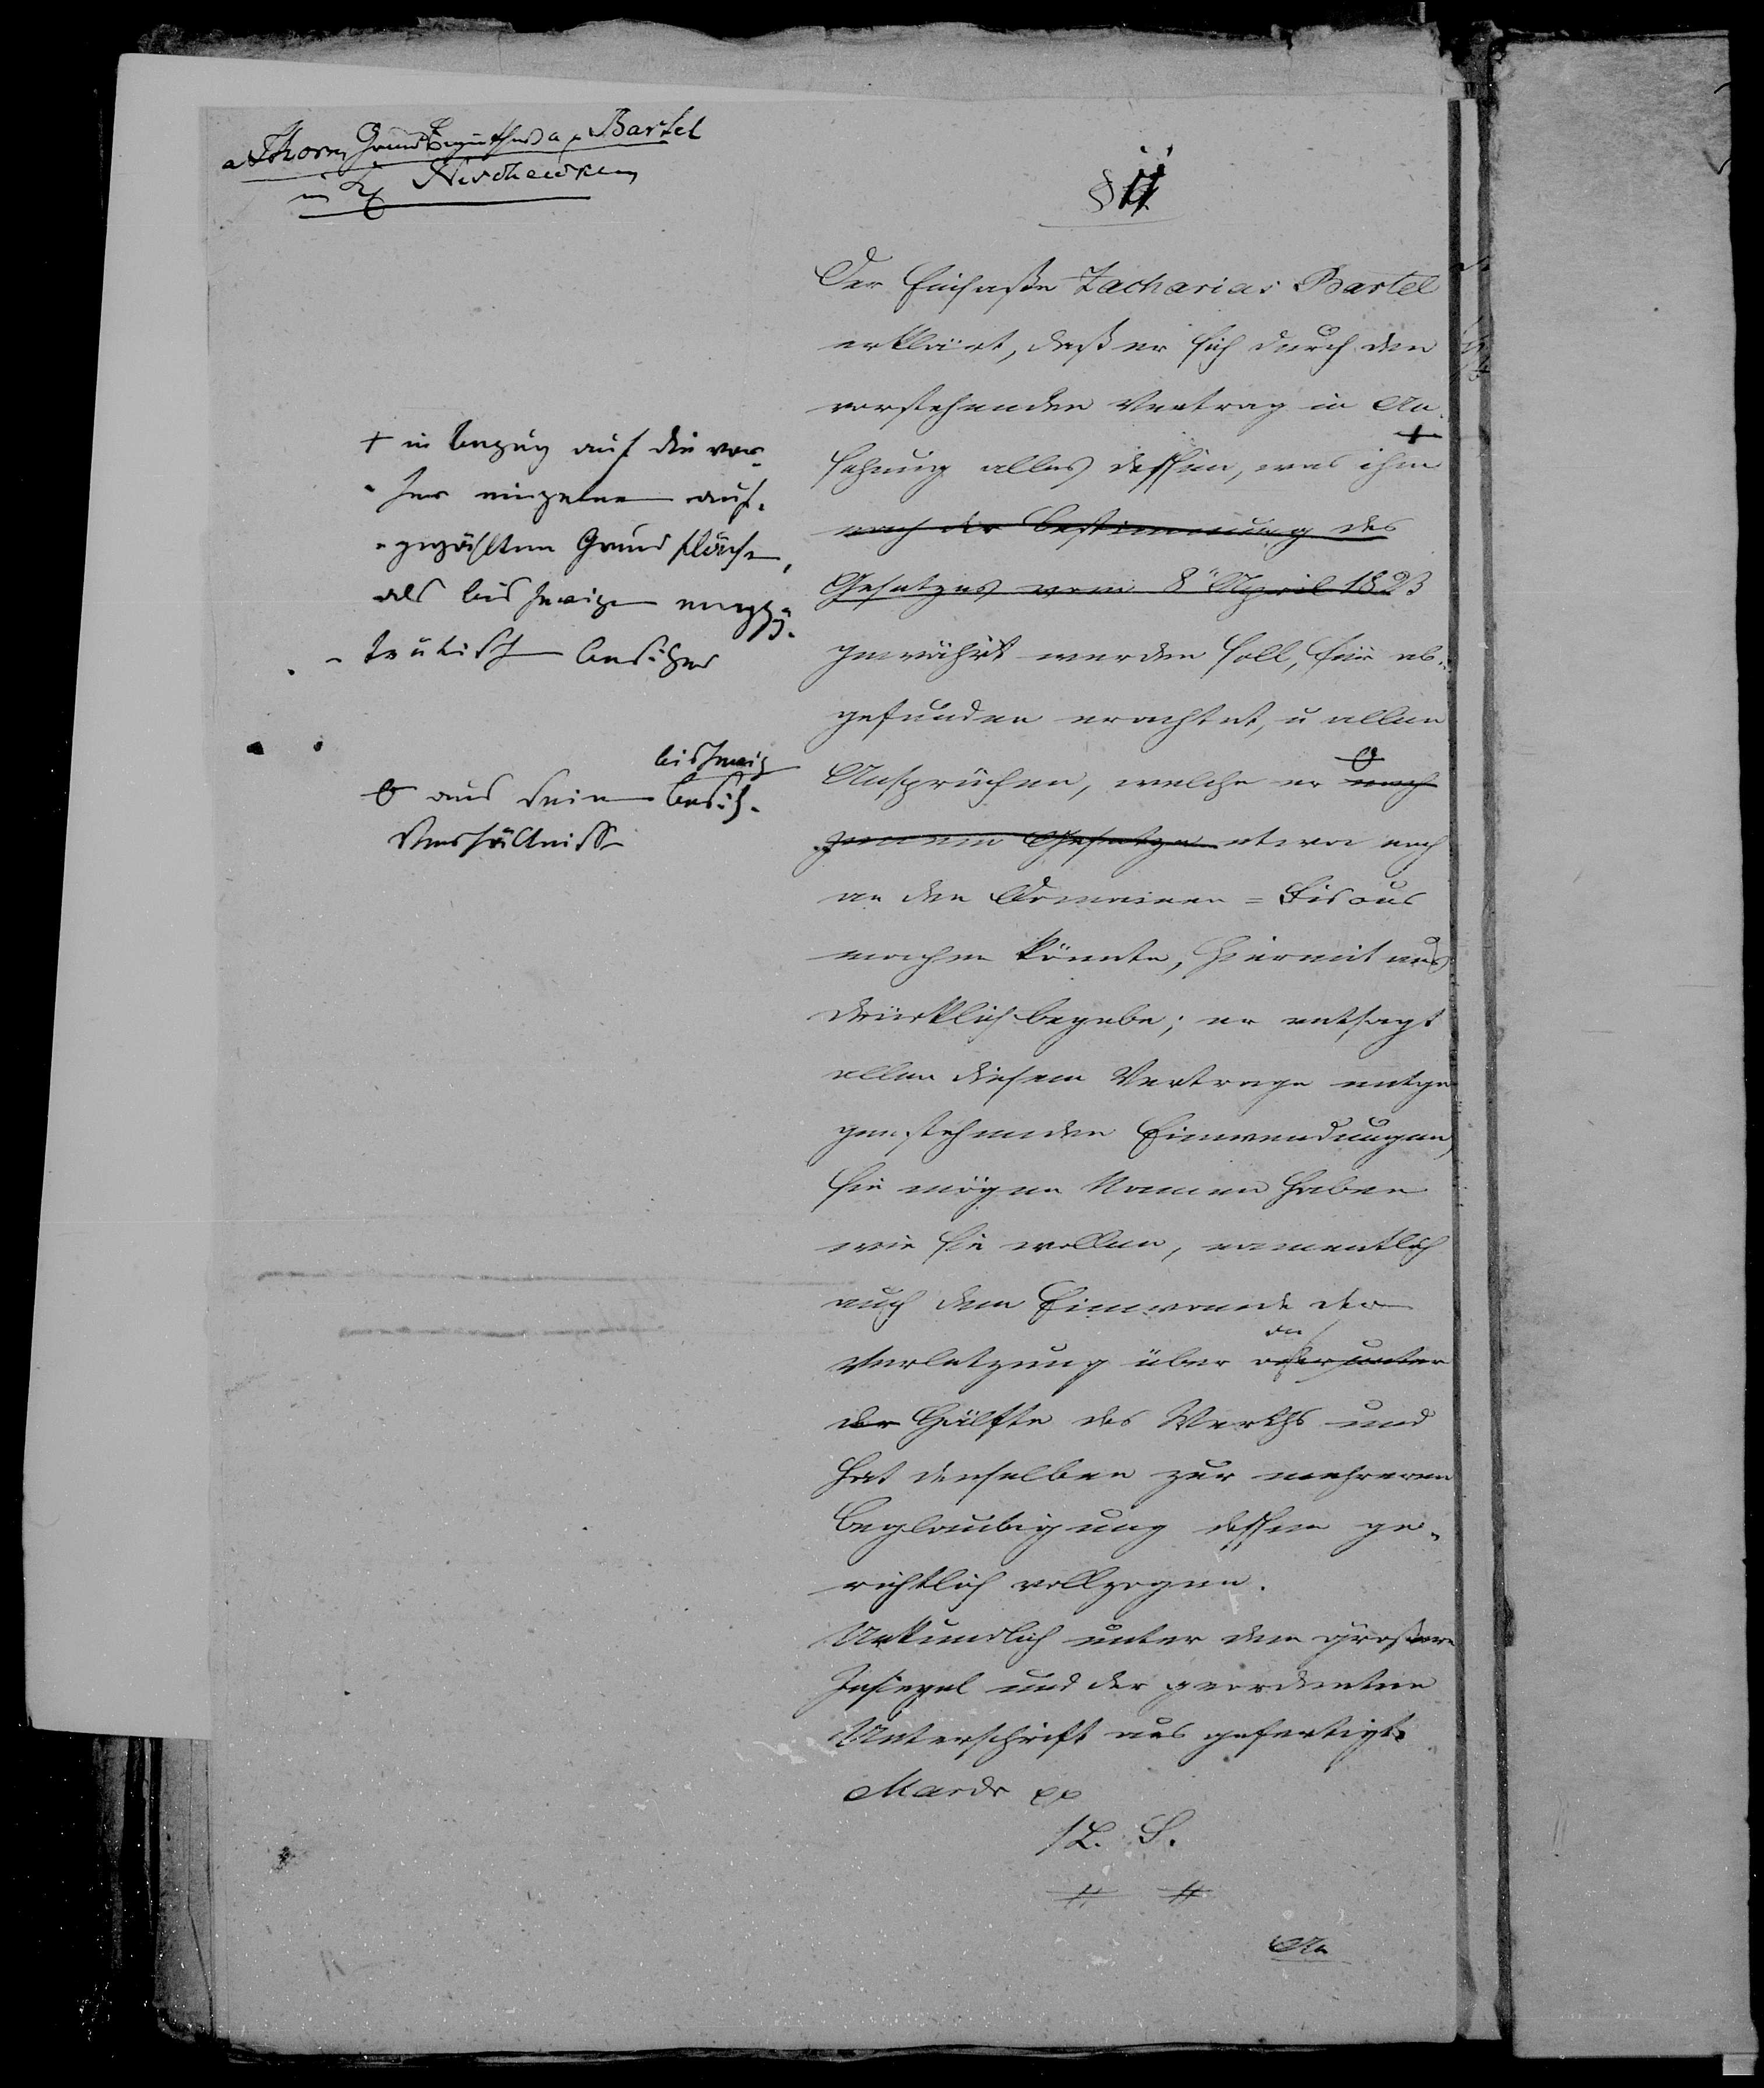 a Thorn, Grund Bartel
in Neschewken
§ 11
Der Einsaße Zacharias Bartel
erklärt, daß er sich durch den
vorstehenden Vertrag in An-
+
sehung alles dessen, was ihm
nach der Bestimmung des
Gesetzes vom 8t April 1823
gewährt werden soll, für ab-
gefunden erachtet, u allen
Ansprüchen, welche er noch
jenem Gesetze etwa noch
an den Domainen = Fiscus
machen könnte, hiermit aus
drücklich begebe; er entsagt
allen diesem Vertrage entge
genstehenden Einwendungen,
sie mögen Namen haben
wie sie wollen, namentlich
auch dem Einwande der
die
Verletzung über oder unter
der Hälfte des Werths und
hat denselben zur mehreren
Beglaubigung dessen ge-
richtlich vollzogen.
Urkundlich unter dem großen
Insiegel und der geordneten
Unterschrift ausgefertigt.
Mardr pp
L. S.
An
+ in Bezug auf die vor-
her einzeln auf-
gezählten Grundstücke,
als bisherigen emphy-
teutischen Besitzer
bisherig
aus seinem Besitz-
Verhältniss